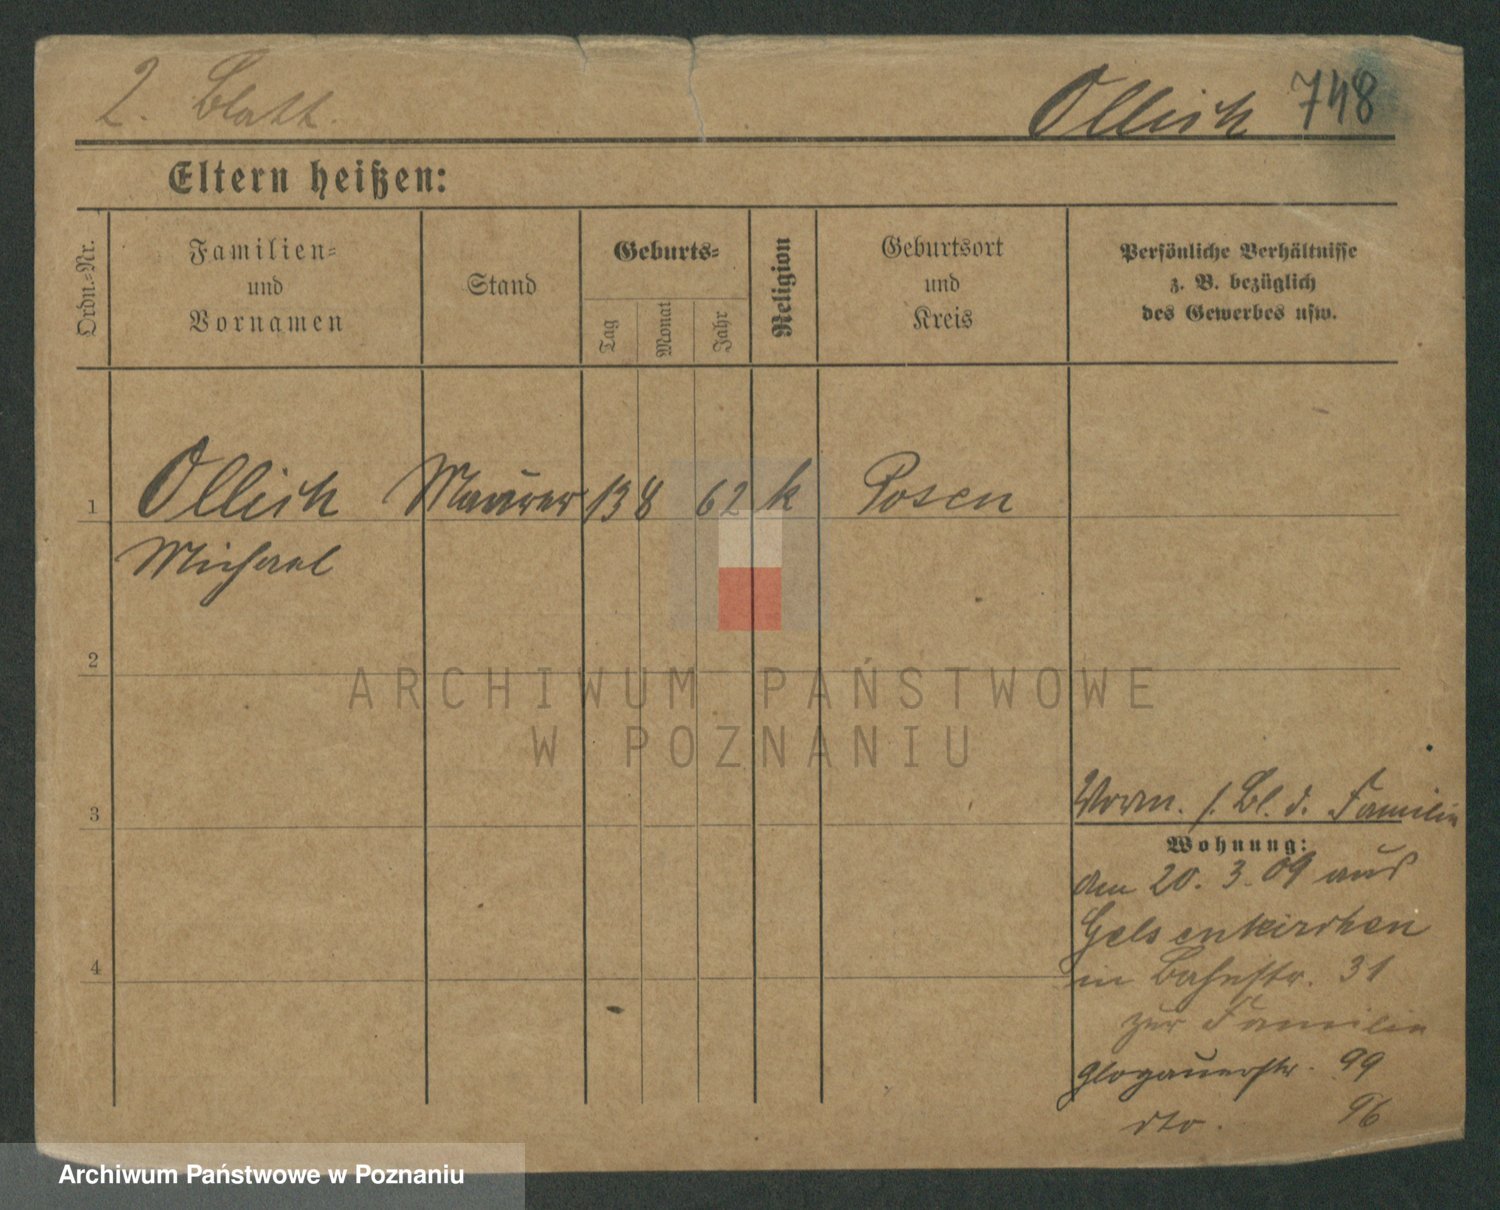 2. Blatt. Ollich 748
Eltern heißen:
Ordn.-Nr.
Familien-
und
Vornamen
Stand
Geburts-
Tag
Monat
Jahr
Religion
Geburtsort
und
Kreis
Persönliche Verhältnisse
z. B. bezüglich
des Gewerbes usw.
1 Ollich Maurer 13 8 62 k Posen
Michael
2
3
4
Vorm. s. Bl. d. Familie
Wohnung:
am 20. 3. 09 aus
Gelsenkirchen
in Bahnstr. 31
zur Familie
Glogauerstr. 99
dto. 96
ARCHIWUM PAŃSTWOWE
W POZNANIU
Archiwum Państwowe w Poznaniu